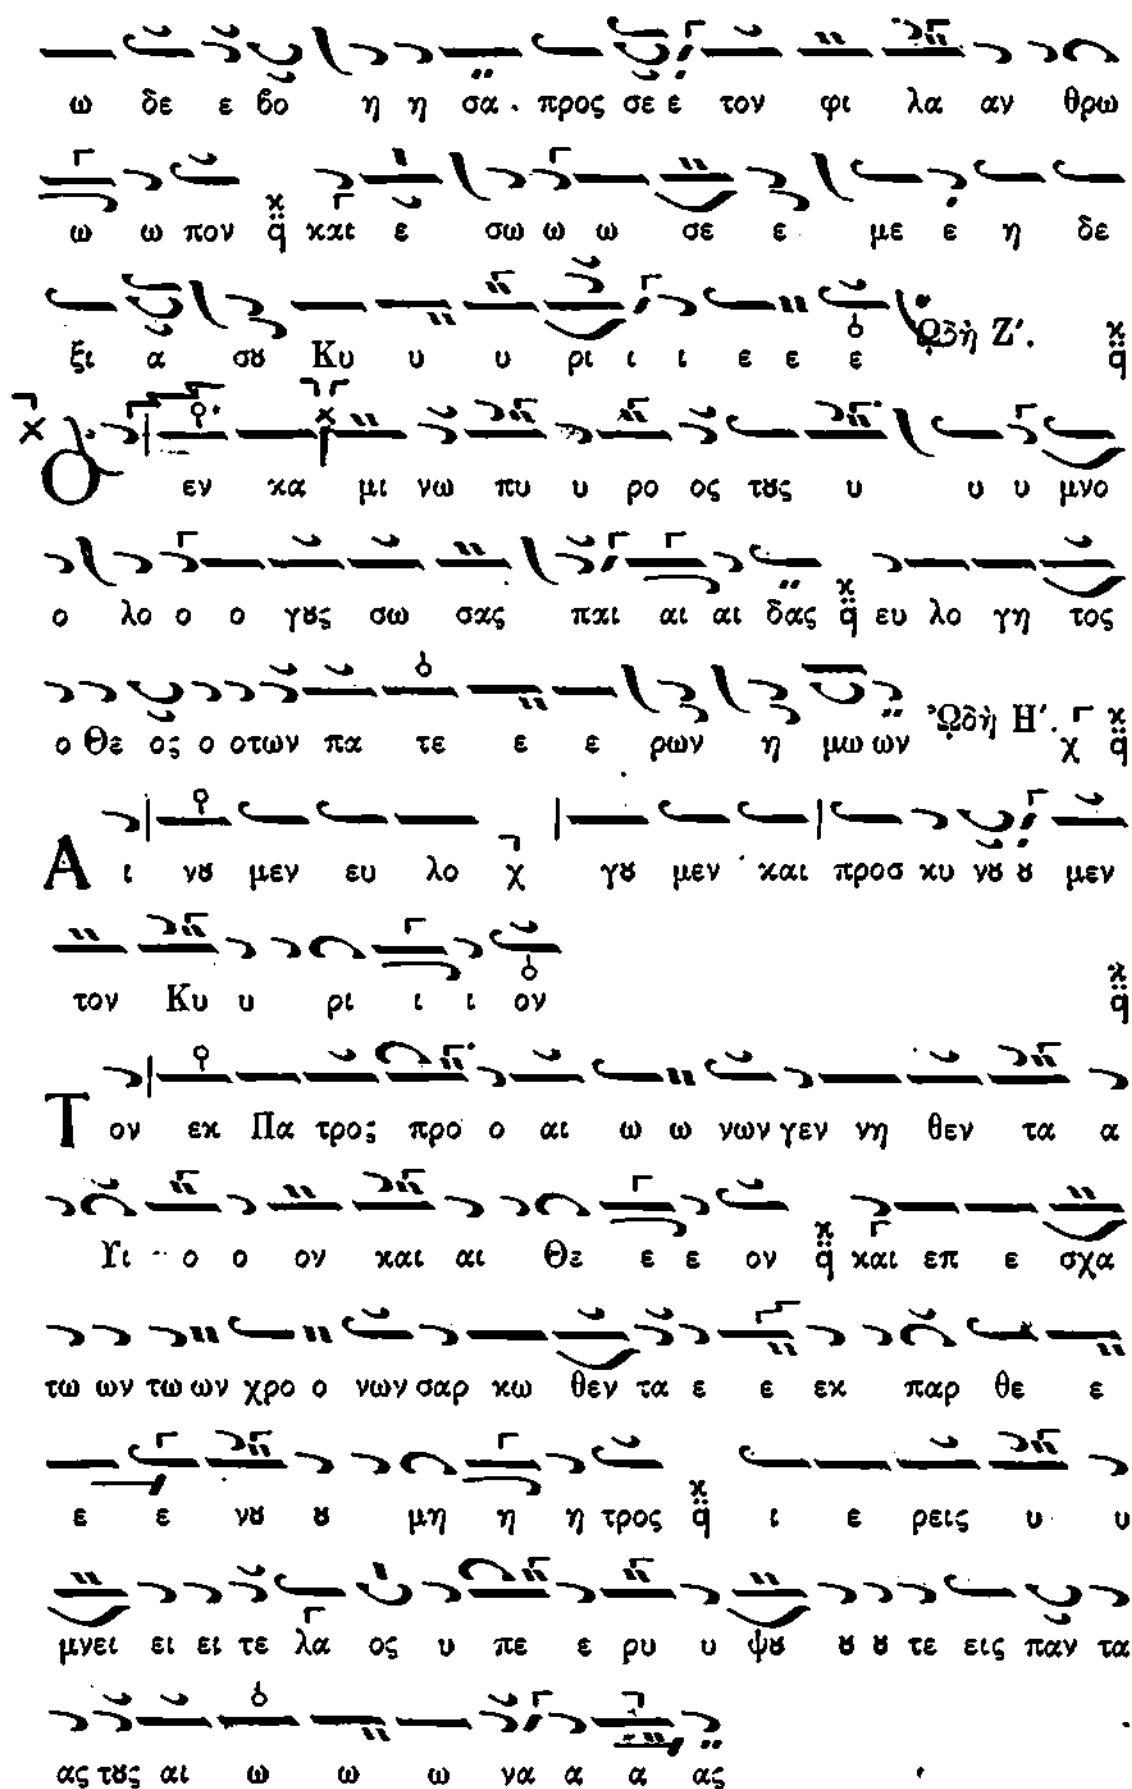 ω δε ε βο η η σα προς σε ε τον φι λα αν θρω
ω ω πον q̈ και ε σω ω ω σε ε με ε η δε
ξι α σȣ Κυ υ υ ρι ι ι ε ε ε ᾨδὴ Ζ′. q̈
Ο εν κα μι νω πυ υ ρο ος τȣς υ υ υ μνο
ο λο ο ο γȣς σω σας παι αι αι δας q̈ ευ λο γη τος
ο Θε ος ο οτων πα τε ε ε ρων η μω ων ᾨδὴ Η′. χ q̈
Α ι νȣ μεν ευ λο χ γȣ μεν και προσ κυ νȣ ȣ μεν
τον Κυ υ ρι ι ι ον q̈
Τ ον εκ Πα τρος προ ο αι ω ω νων γεν νη θεν τα α
Υι ο ο ον και αι Θε ε ε ον q̈ και επ ε σχα
τω ων τω ων χρο ο νων σαρ κω θεν τα ε ε εκ παρ θε ε
ε ε νȣ ȣ μη η η τρος q̈ ι ε ρεις υ υ
μνει ει ει τε λα ος υ πε ε ρυ υ ψȣ ȣ ȣ τε εις παν τα
ας τȣς αι ω ω ω να α α ας